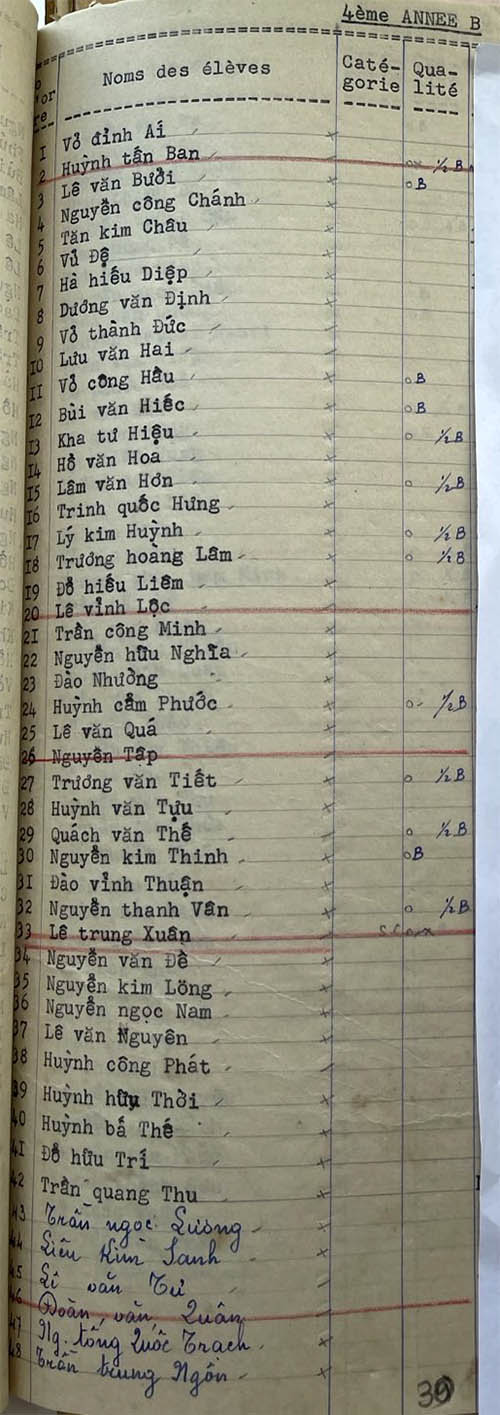 4ème ANNEE B
Noms des élèves Caté- Qua-
gorie lité
1 Võ đình Aí
2 Huỳnh tấn Ban ½ B
3 Lê văn Bưởi B
4 Nguyễn công Chánh
5 Tăn kim Châu
6 Vũ Đệ
7 Hà hiếu Diệp
8 Dương văn Định
9 Võ thành Đức
10 Lưu văn Hai
11 Võ công Hầu B
12 Bùi văn Hiếc B
13 Kha tư Hiệu ½ B
14 Hồ văn Hoa
15 Lâm văn Hơn ½ B
16 Trinh quốc Hưng
17 Lý kim Huỳnh ½ B
18 Trương hoàng Lâm ½ B
19 Đỗ hiếu Liêm
20 Lê vỉnh Lộc
21 Trần công Minh
22 Nguyễn hữu Nghĩa
23 Đào Nhường
24 Huỳnh cẩm Phước ½ B
25 Lê văn Quá
26 Nguyễn Tập
27 Trương văn Tiết ½ B
28 Huỳnh văn Tựu
29 Quách văn Thế ½ B
30 Nguyễn kim Thinh B
31 Đào vỉnh Thuận
32 Nguyễn thanh Vân ½ B
33 Lê trung Xuân
34 Nguyễn văn Đề
35 Nguyễn kim Lông
36 Nguyễn ngọc Nam
37 Lê văn Nguyên
38 Huỳnh công Phát
39 Huỳnh hữu Thời
40 Huỳnh bá Thế
41 Đỗ hữu Trí
42 Trần quang Thu
43 Trần ngọc Lương
44 Liêu Kim Sanh
45 Lê văn Tư
46 Đoàn văn Quân
47 Ng. tông Quốc Trạch
48 Trần trung Ngôn
30